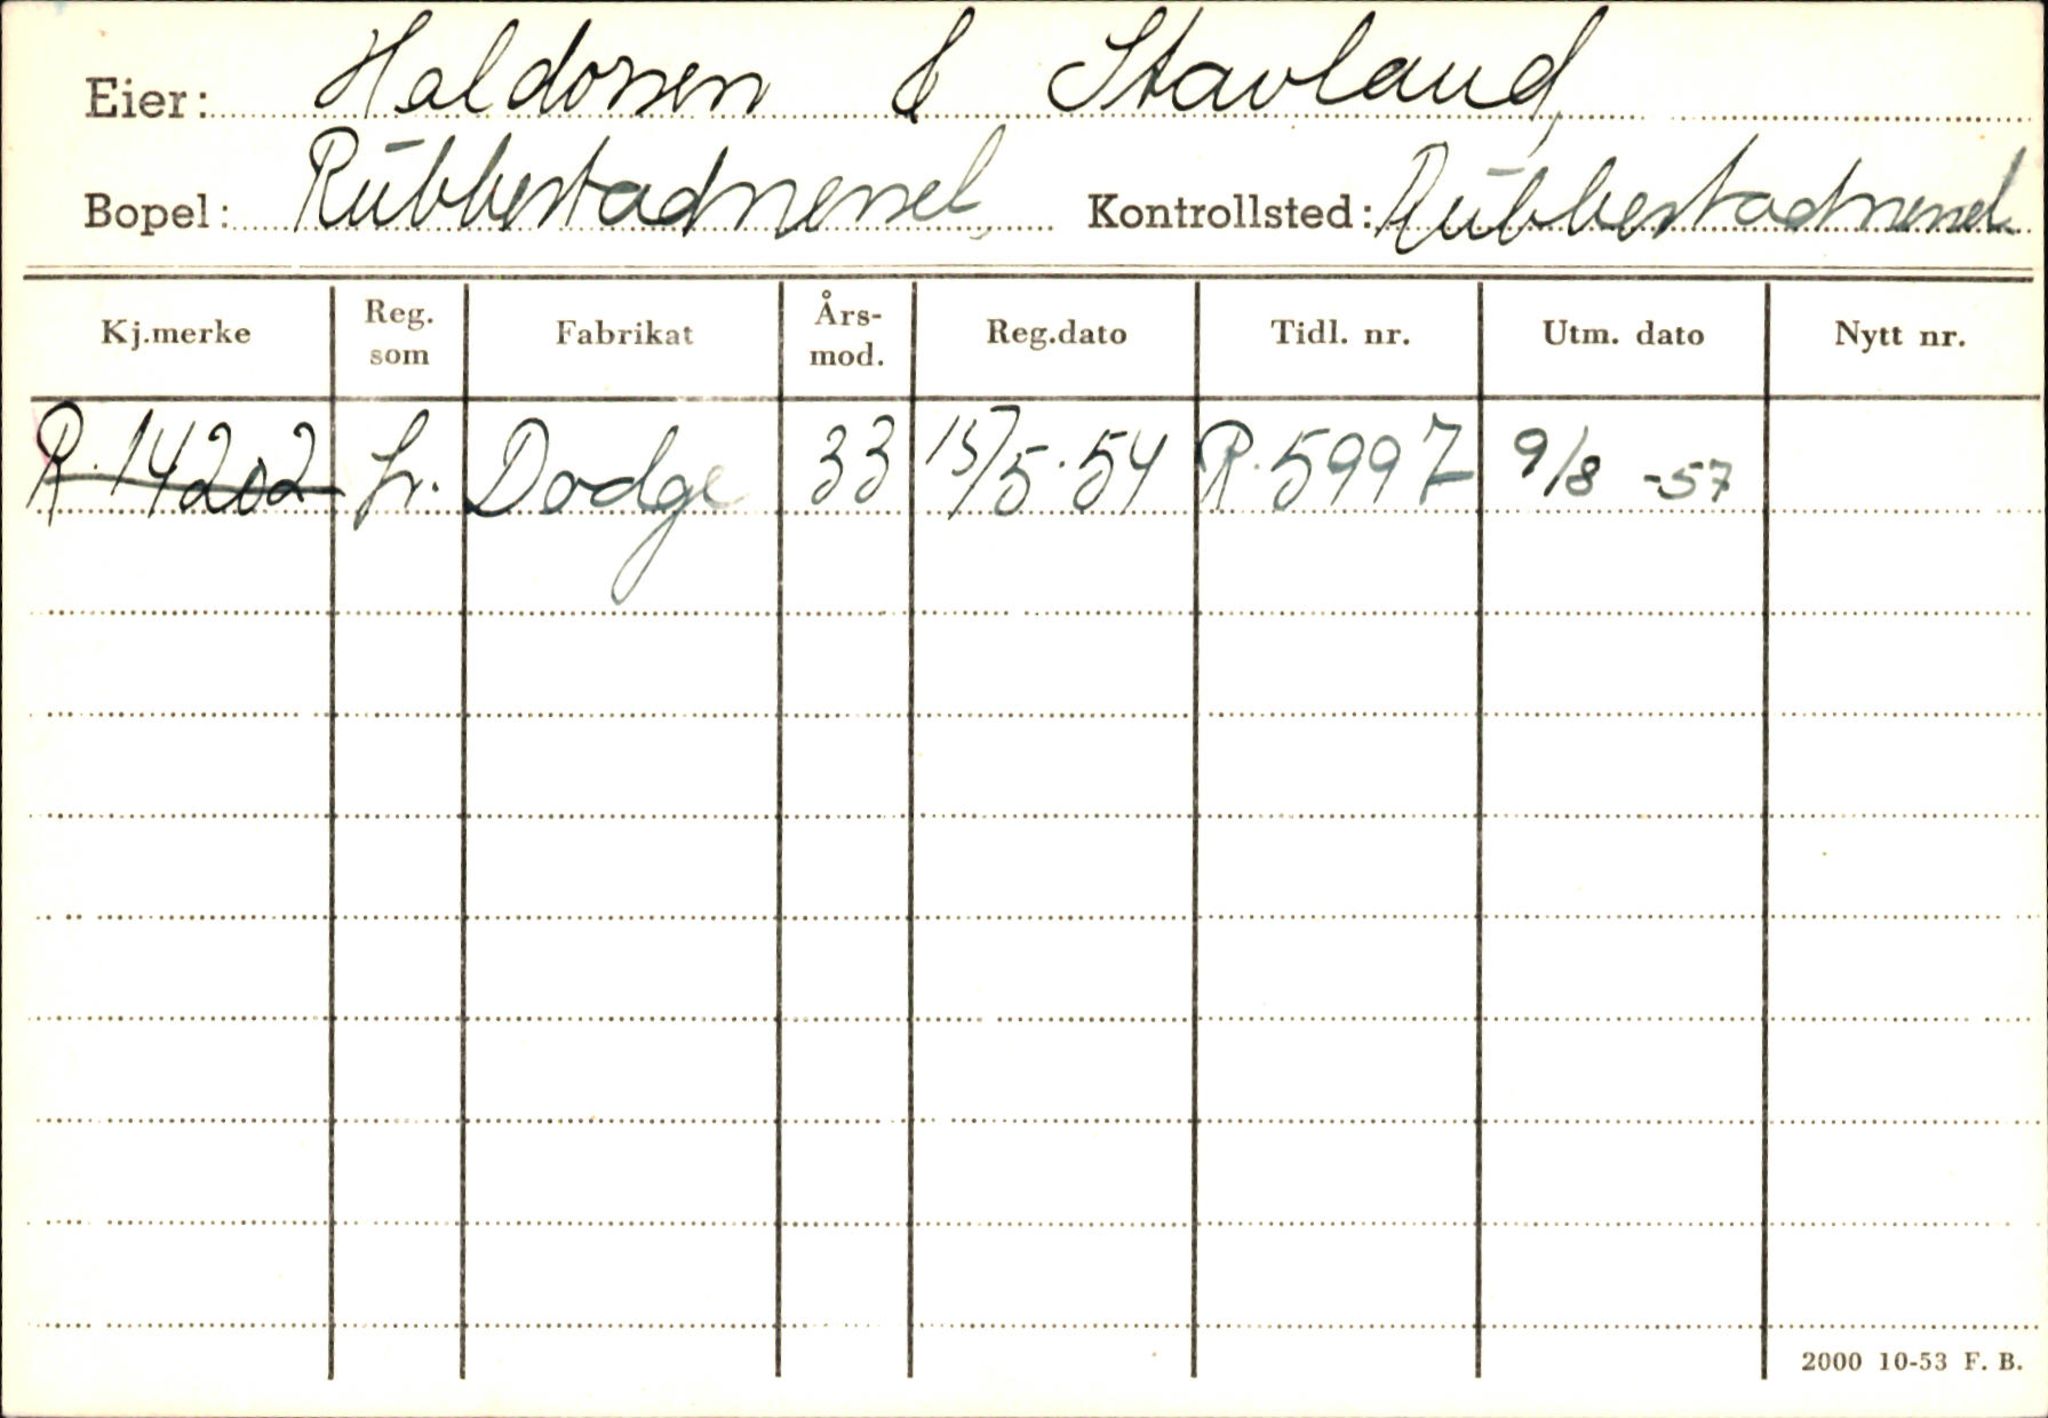 Eier: Haldorsen & Stavland
Bopel: Rubbestadnesset Kontrollsted: Rubbestadnesset
Kj.merke Reg. som Fabrikat Års-mod. Reg.dato Tidl. nr. Utm. dato Nytt nr.
R.14202 Dodge 33 15/5.54 R.5997 9/8 -57
2000 10-53 F. B.